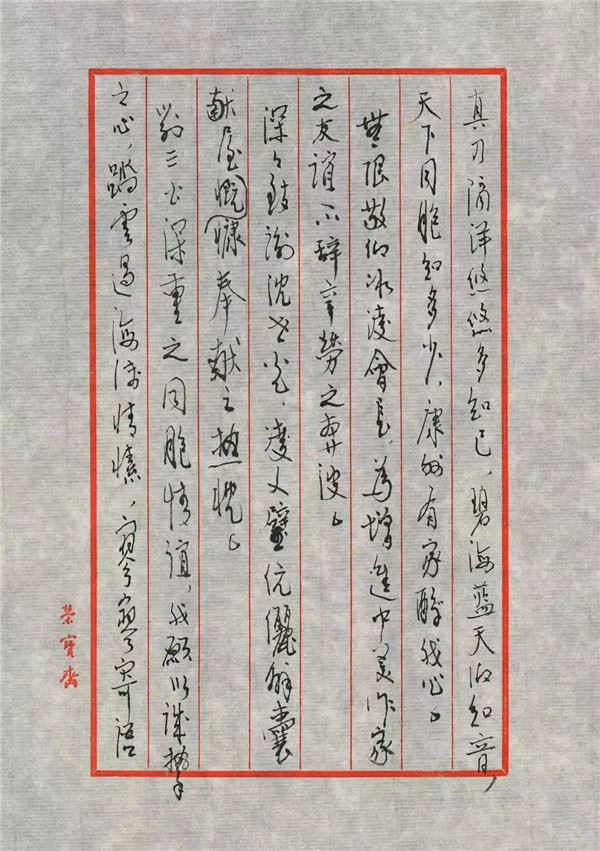 真月隔洋悠悠多知己，碧海蓝天為知音，
天下同胞知多少，康州有家醉我心。
無限敬仰冰凌會長，為增進中美作家
之友誼不辭辛勞之奔波。
深々致謝沈世光、凌文璧伉儷解囊
献屋慨慷奉献之熱忱。
對三公深重之同胞情誼，我願以誠摯
之心，踏雲過海傳情愫，寥寥寄語
榮寶齋